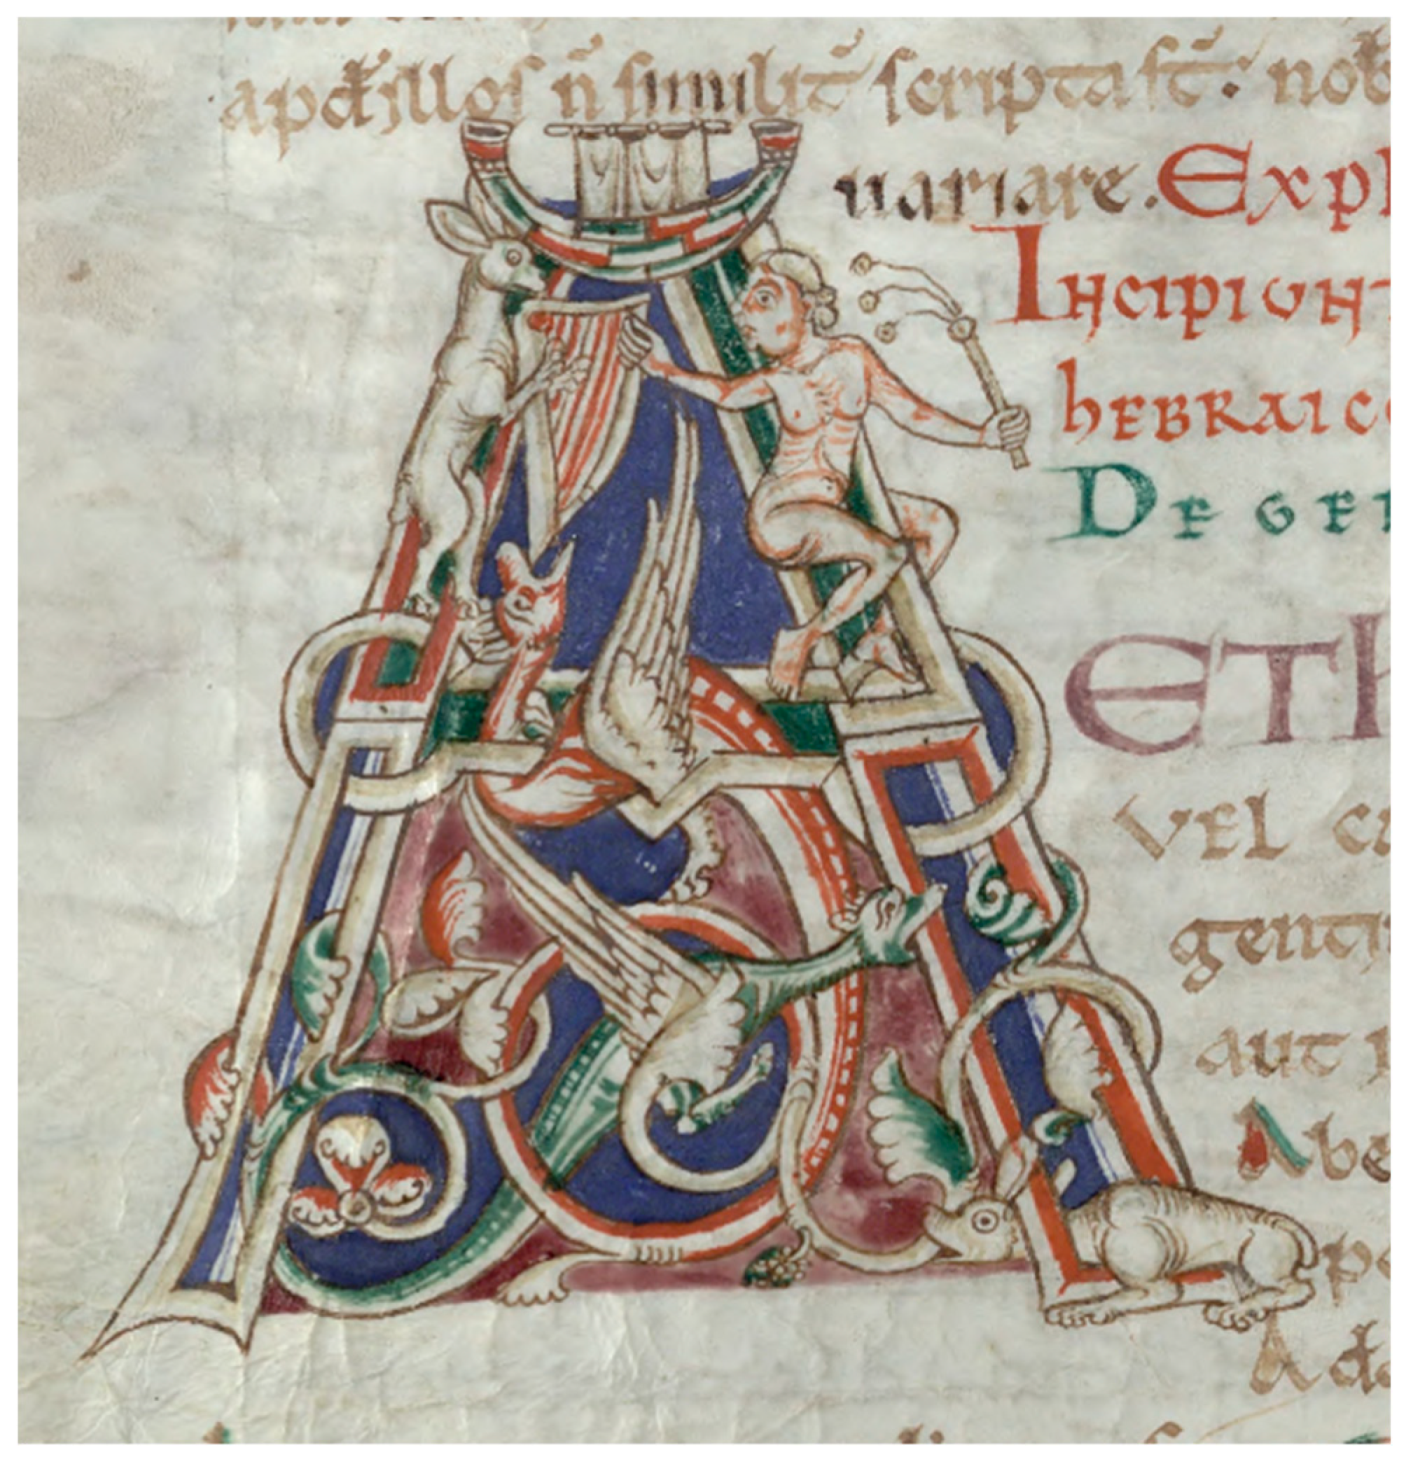 apd̄ illos n̄ similit̄ scripta st̄. nob
uariare. Expl
Incipiunt
hebraico
De gen
A Eth
vel ca
gentiu
aut
Abe
Ada